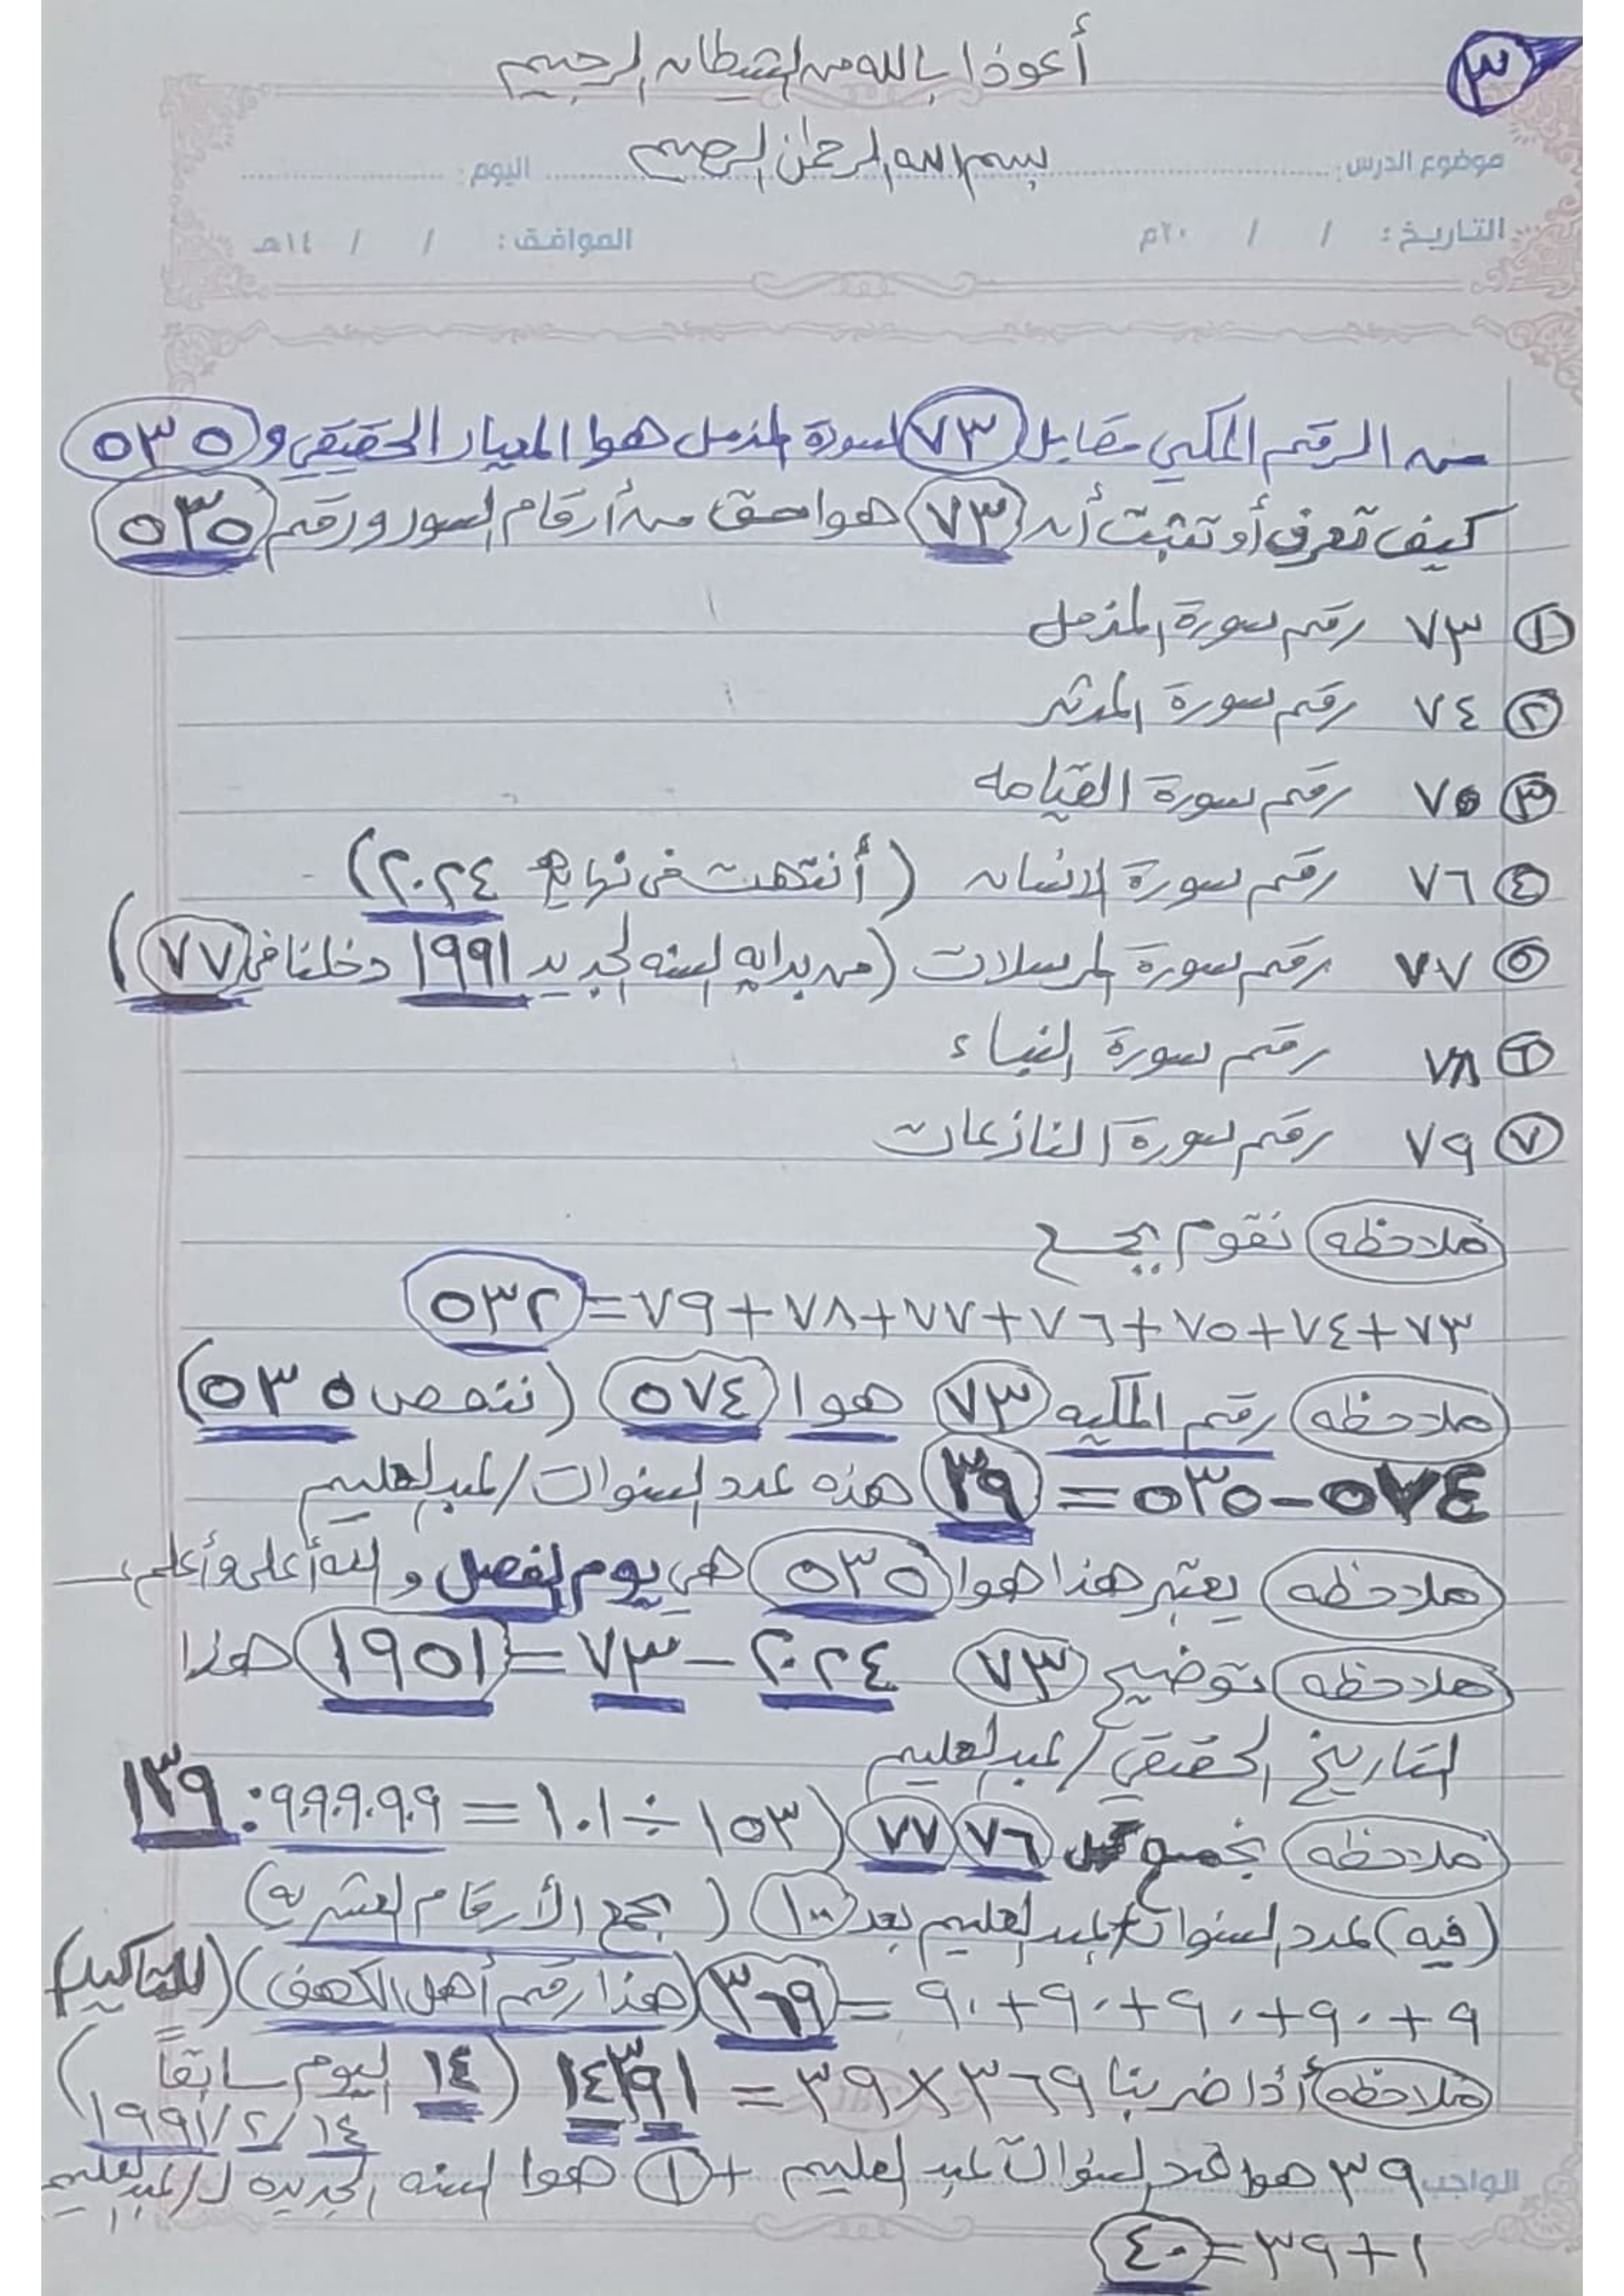 ٣
أعوذا بالله من الشيطان الرجيم
بسم الله الرحمن الرحيم
موضوع الدرس: اليوم:
التاريخ: / / ٢٠م الموافق: / / ١٤هـ
من الرقم المكي مقابل ٧٣ لسورة المزمل هوا المعيار الحقيقي و ٥٣٥
كيف تعرف أو تثبت أن ٧٣ هوا حق من أرقام السور ورقم ٥٣٥
١ ٧٣ رقم سورة المزمل
٢ ٧٤ رقم سورة المدثر
٣ ٧٥ رقم سورة القيامه
٤ ٧٦ رقم سورة الانسان (أنتهت في نهاية ٢٠٢٤)
٥ ٧٧ رقم سورة المرسلات (من بدايه السنه الجديد ١٩٩١ دخلنا في ٧٧)
٦ ٧٨ رقم سورة النباء
٧ ٧٩ رقم سورة النازعات
ملاحظه نقوم بجمع
٧٣+٧٤+٧٥+٧٦+٧٧+٧٨+٧٩=٥٣٢
ملاحظه رقم المكيه ٧٣ هوا ٥٧٤ (ننقص ٥٣٥)
٥٧٤-٥٣٥=٣٩ هذه عدد السنوات/عبدالعليم
ملاحظه يعتبر هذا هوا ٥٣٥ هي يوم الفصل و الله أعلى وأعلم
ملاحظه توضيح ٧٣ ٢٠٢٤-٧٣=١٩٥١ هذا
التاريخ الحقيقي/عبدالعليم
ملاحظه نجمع ٧٦ ٧٧ (١٥٣÷١.١=٩.٩.٩.٩.٩:١٣٩
(فيه) عدد السنوات/عبدالعليم بعد ١٠٠ (بجمع الأرقام العشريه)
٩+٩٠+٩٠+٩٠+٩٠=٣٦٩ (هذا رقم أهل الكهف) (للتأكيد)
ملاحظه أذا ضربنا ٣٦٩×٣٩=١٤٣٩١ (١٤ اليوم سابقاً)
١٤/٢/١٩٩١
٣٩ هوا عدد السنوات عبد العليم +١ هوا السنه الجديده ل/عبدالعليم
الواجب
١+٣٩=٤٠